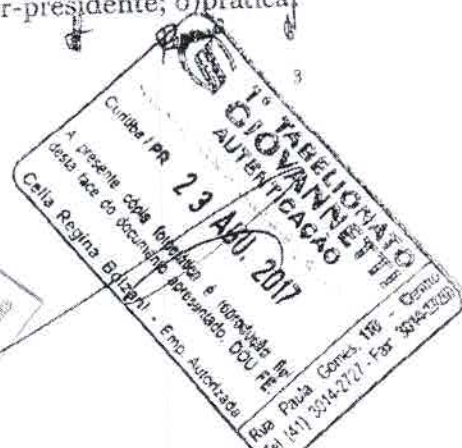 r-presidente; o)pratica
3
1º TABELIONATO
GIOVANNETTI
AUTENTICAÇÃO
Curitiba / PR
23 AGO. 2017
A presente cópia fotostática é reprodução fiel
desta face do documento apresentado. DOU FÉ.
Celia Regina Bolzani - Emp. Autorizada
Rua Paula Gomes, 110 - Centro
Tel (41) 3014-2727 - Fax